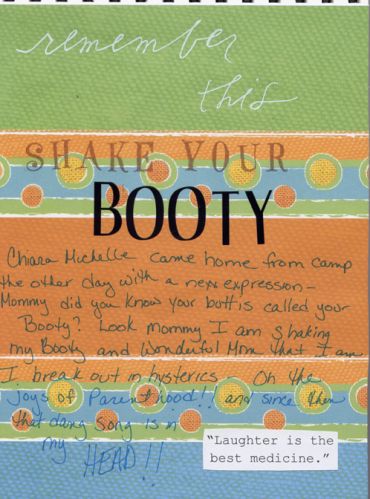 remember
this
SHAKE YOUR
BOOTY
Chiara Michelle came home from camp
the other day with a new expression -
Mommy did you know your butt is called your
Booty? Look mommy I am shaking
my Booty and Wonderful Mom that I am
I break out in hysterics. Oh the
joys of Parenthood!! and since then
that dang song is in
my HEAD!!
"Laughter is the
best medicine."